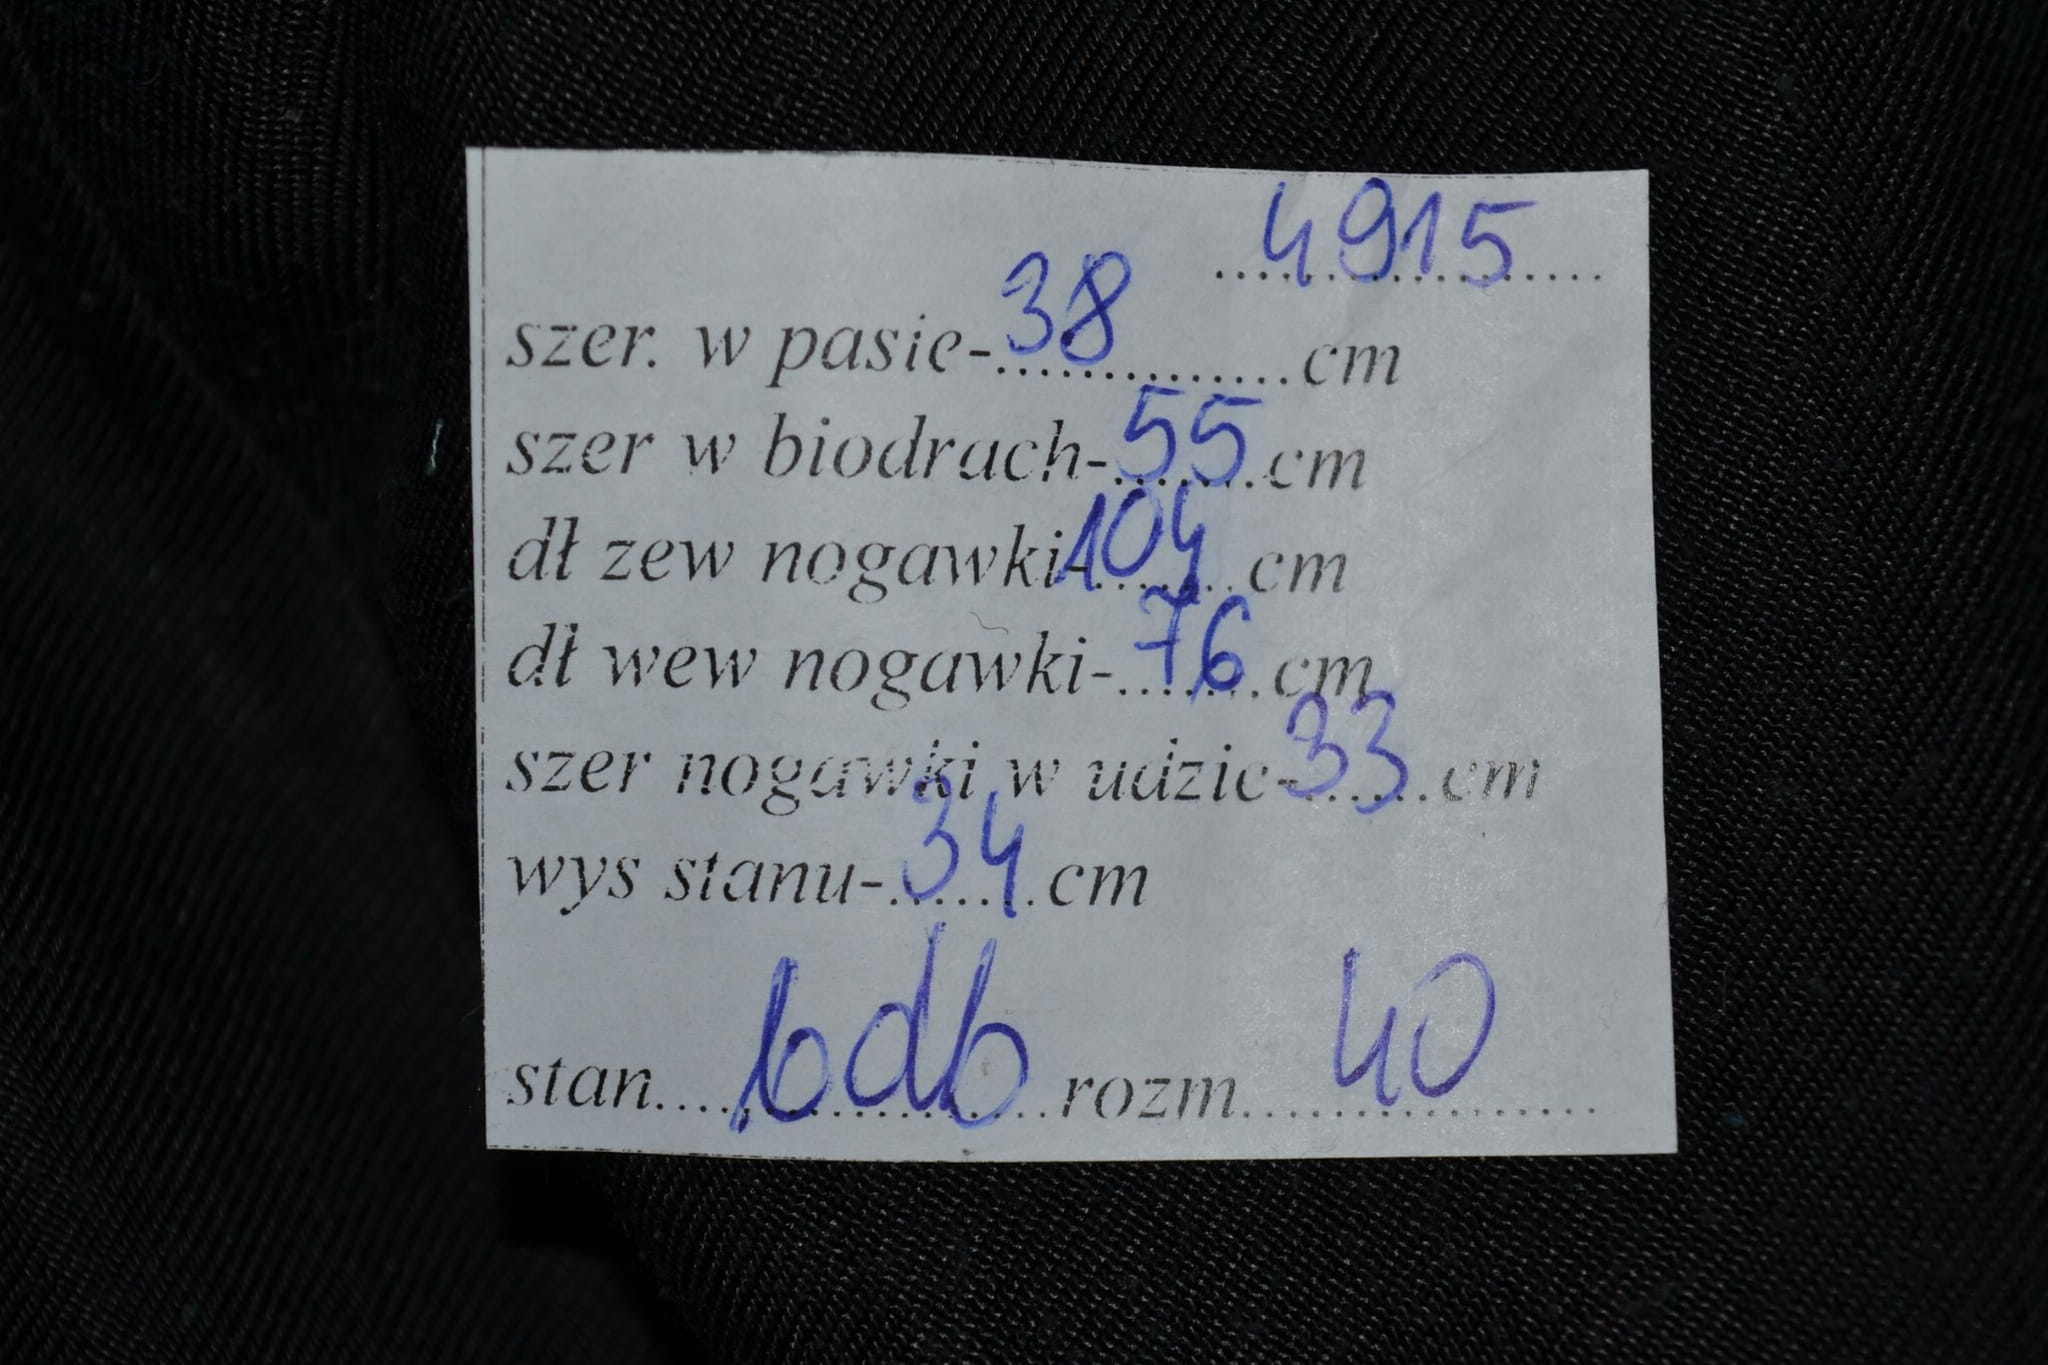 4915
szer. w pasie-38 cm
szer w biodrach-55 cm
dł zew nogawki-104 cm
dł wew nogawki-76 cm
szer nogawki w udzie-33 cm
wys stanu-34 cm
stan bdb rozm 40